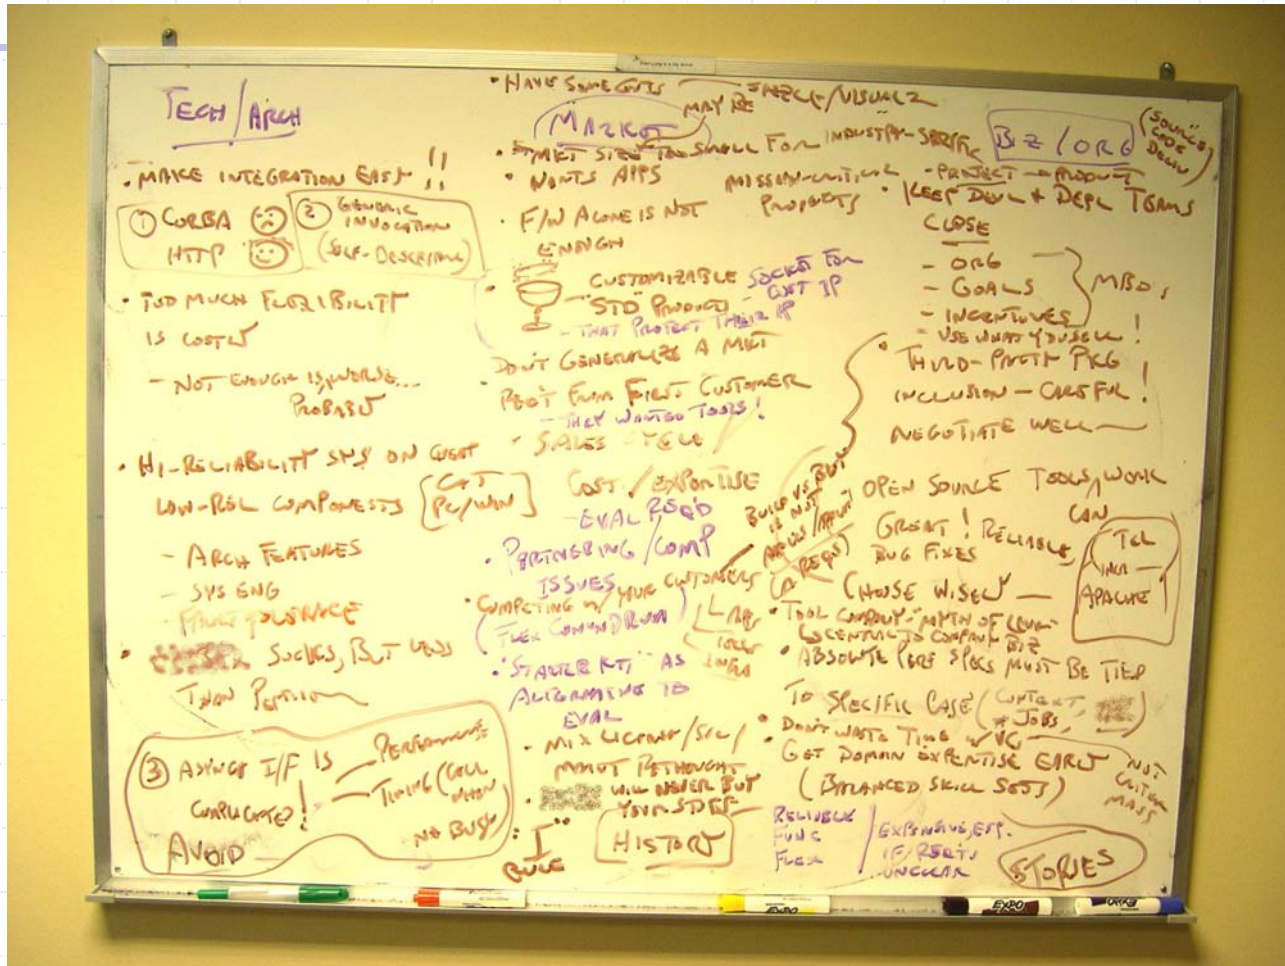 TECH/ARCH
• MAKE INTEGRATION EASY !!
① CORBA
HTTP
② GENERIC
INVOCATION
(SELF-DESCRIBING)
• TOO MUCH FLEXIBILITY
IS COSTLY
- NOT ENOUGH IS WORSE...
PROBABLY
• HI-RELIABILITY SYS ON
LOW-REL COMPONENTS
PC/WIN
- ARCH FEATURES
- SYS ENG
- FAULT TOLERANCE
SUCKS, BUT LESS
THAN
③ ASYNCH I/F IS
COMPLICATED!
AVOID
- PERFORMANCE
- TIMING (CALL
WHEN
NOT BUSY
• HAVE SOME GUTS
MARKET
MAY BE
• MKT SIZE TOO SMALL FOR INDUSTRY-SPECIFIC
• WANTS APPS
MISSION-CRITICAL
PRODUCTS
• F/W ALONE IS NOT
ENOUGH
CUSTOMIZABLE
"STD" PRODUCTS
SOCKET FOR
CUST IP
- THAT PROTECT THEIR IP
• DON'T GENERALIZE A MKT
REQ'T FROM FIRST CUSTOMER
- THEY WANTED TOOLS!
• SALES CYCLE
COST / EXPERTISE
- EVAL REQ'D
• PARTNERING/COMP
ISSUES
• COMPETING W/ YOUR CUSTOMERS
(FLEX CONUNDRUM)
• "STARTER KIT" AS
ALTERNATIVE TO
EVAL
WILL NEVER BUY
YOUR STUFF
• "I"
RULE
HISTORY
BUILD VS BUY
IS NOT
(A REQS)
BIZ/ORG
(SOURCE
CODE
- PROJECT → PRODUCT
• KEEP DEVL & DEPL TEAMS
CLOSE
- ORG
- GOALS
- INCENTIVES
MBOs
- USE WHAT YOU SELL!
• THIRD-PARTY PKG
INCLUSION - CAREFUL!
NEGOTIATE WELL
OPEN SOURCE TOOLS/WORK
CAN
GREAT! RELIABLE,
BUG FIXES
CHOOSE WISELY
TCL
APACHE
• TOOL COMPANY - MYTH OF
• ABSOLUTE PERF SPECS MUST BE TIED
TO SPECIFIC CASE (CONTEXT,
# JOBS,
• DON'T WASTE TIME W/ VC
• GET DOMAIN EXPERTISE EARLY
(BALANCED SKILL SETS)
NOT
CRITICAL
MASS
RELIABLE
FUNC
FLEX
EXPENSIVE, ESP.
IF REQTS
UNCLEAR
STORIES
EXPO
EXPO